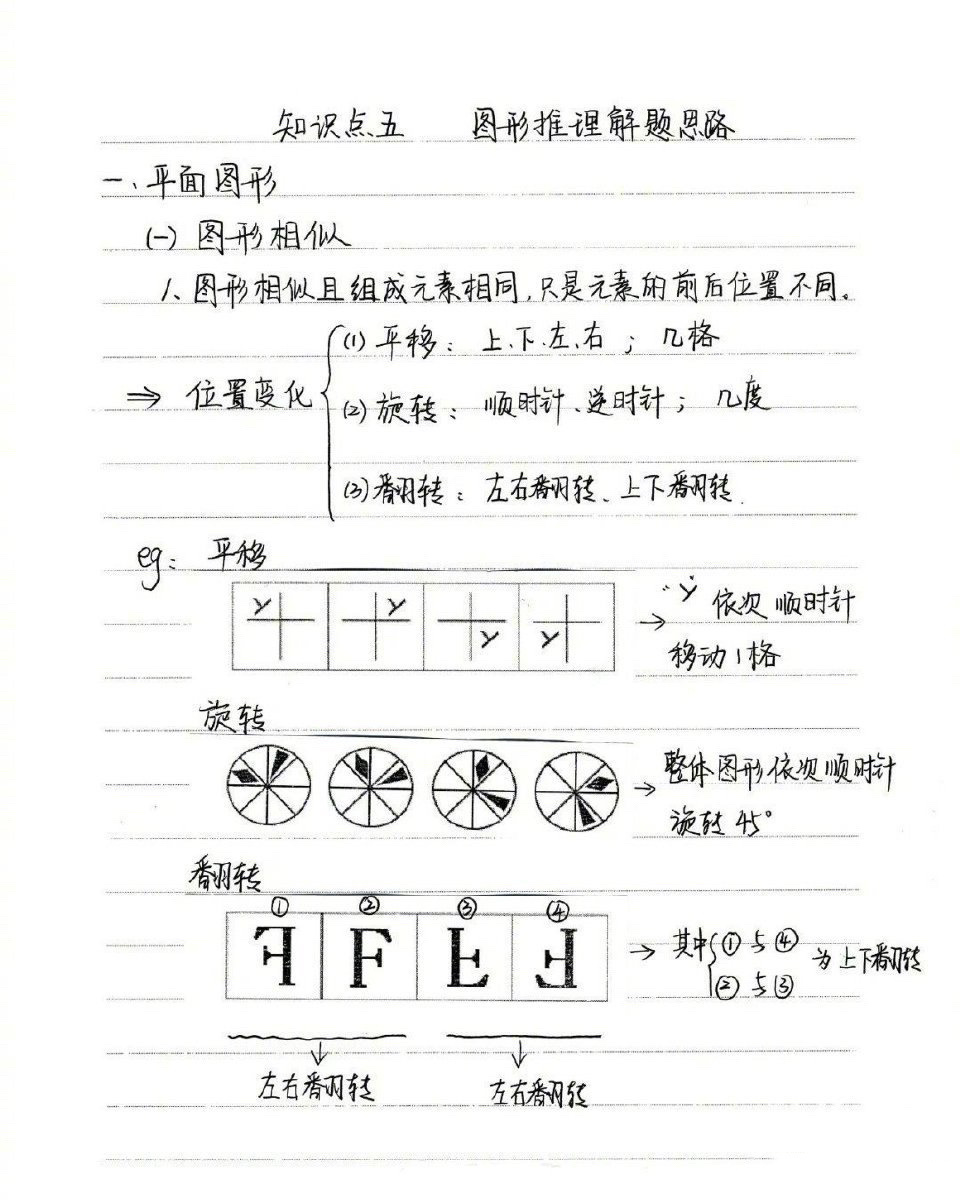 知识点五 图形推理解题思路
一、平面图形
(一) 图形相似
1、图形相似且组成元素相同,只是元素的前后位置不同。
⇒ 位置变化
(1) 平移: 上、下、左、右; 几格
(2) 旋转: 顺时针、逆时针; 几度
(3) 翻转: 左右翻转、上下翻转.
eg: 平移
Y Y Y Y
→ "Y" 依次顺时针
移动1格
旋转
→ 整体图形依次顺时针
旋转45°
翻转
① ② ③ ④
F F F F
→ 其中 ①与④ 为上下翻转
②与③
左右翻转 左右翻转